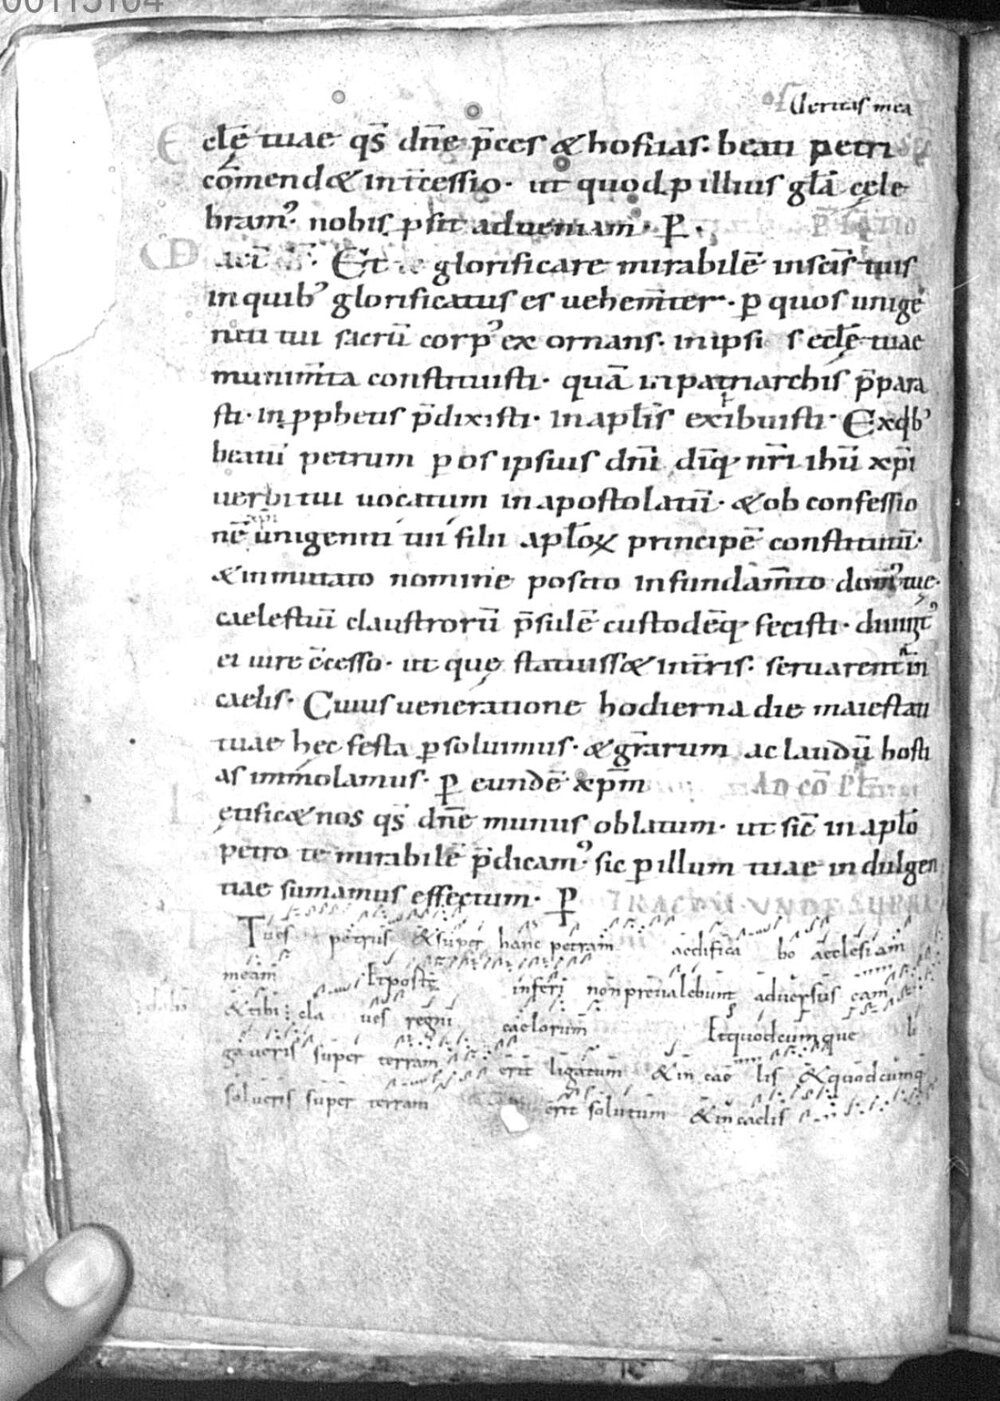 00115104
Of Veritas mea
Eclę̄ tuae qs̄ dn̄e p̄ces & hostias· beati petri
cōmend& int̄cessio· ut quod p illius gl̄a cęle
bram⁹ nobis p̱sit ad ueniam· P̱·
Et te glorificare mirabilē in scīs tuis
in quib⁹ glorificatus es uehem̄ter· p̱ quos unige
niti tui sacrū corp⁹ ex ornans· in ipsi s eclę̄ tuae
munim̄ta constituisti· quā in patriarchis p̄para
sti· in p̱phetis p̄dixisti· in aplīs exibuisti· Ex qb⁹
beatū petrum p̱ os ipsius dn̄i d̄iq; nr̄i ihū xp̄i
uerbi tui uocatum in apostolatū· & ob confessio
nē xp̄i unigeniti tui filii aplōꝝ principē constituti·
& in mutato nomine posito in fundam̄to dom⁹ tuę·
caelestiū claustrorū p̄sulē custodēq; fecisti· diuinit⁹
ei iure c̄cesso· ut quę statuiss& in t̄ris· seruarent̄ in
caelis· Cuius ueneratione hodierna die maiestati
tuae hęc festa p̱soluimus· & gr̄arum ac laudū hosti
as immolamus· P̱ eundē xp̄m Ad cō Pl̄
ętific& nos qs̄ dn̄e munus oblatum· ut sic̄ in aplō
petro te mirabilē p̄dicam⁹· sic p̱ illum tuae indulgen
tiae sumamus effectum· P̱
TRACTU·
Tu es petrus & super hanc petram aedifica bo aecclesiam
meam Et portę inferi non preualebunt aduersus eam
& tibi cla ues regni caelorum Et quodcumque li
gaueris super terram erit ligatum & in cae lis & quodcumq;
solueris super terram erit solutum & in caelis